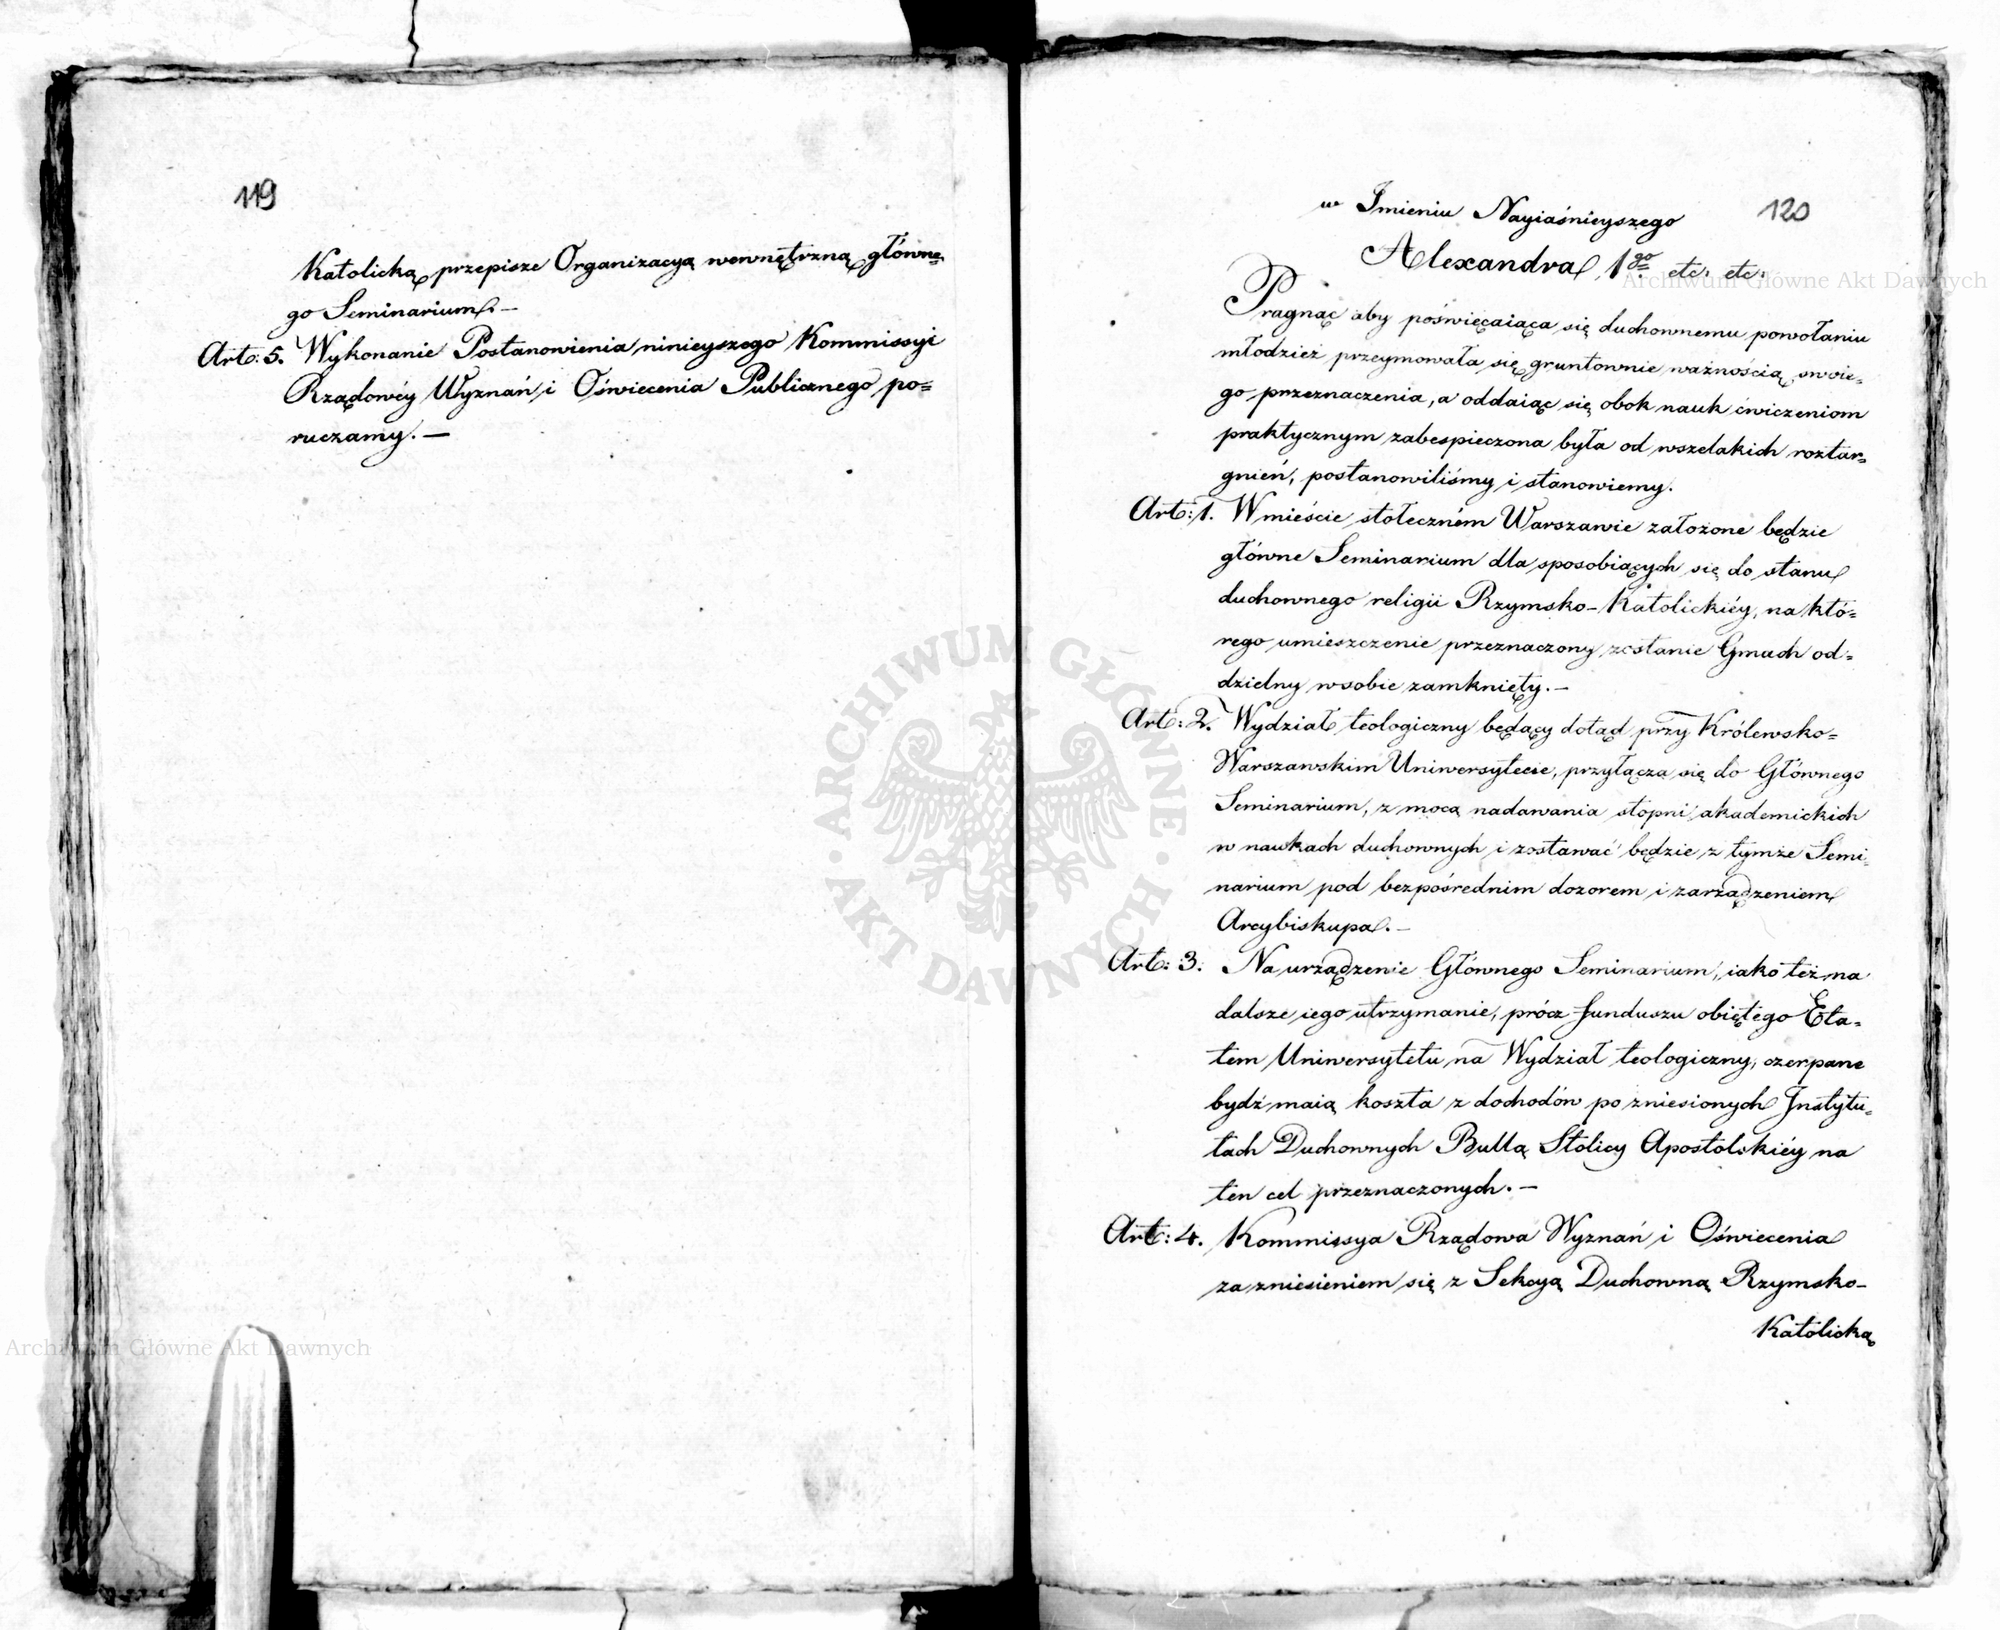 119
Katolicką przepisze Organizacyą wewnętrzną główne=
go Seminarium. —
Art: 5. Wykonanie Postanowienia ninieyszego Kommissyi
Rządowéy Wyznań i Oświecenia Publicznego po=
ruczamy. —
120
w Imieniu Nayiaśnieyszego
Alexandra 1go etc. etc.
Pragnąc aby poświęcaiąca się duchownemu powołaniu
młodzież przeymowała się gruntownie ważnością swoie=
go przeznaczenia, a oddaiąc się obok nauk ćwiczeniom
praktycznym zabespieczona była od wszelakich roztar=
gnień, postanowiliśmy i stanowiemy.
Art: 1. W mieście stołeczném Warszawie założone będzie
główne Seminarium dla sposobiących się do stanu
duchownego religii Rzymsko-Katolickiéy, na któ=
rego umieszczenie przeznaczony zostanie Gmach od=
dzielny w sobie zamknięty. —
Art: 2. Wydział teologiczny będący dotąd przy Królewsko=
Warszawskim Uniwersytecie, przyłącza się do Głównego
Seminarium, z mocą nadawania stopni akademickich
w naukach duchownych i zostawać będzie z tymże Semi=
narium pod bezpośrednim dozorem i zarządzeniem
Arcybiskupa. —
Art: 3. Na urządzenie Głównego Seminarium, iako też na
dalsze iego utrzymanie, prócz funduszu obiętego Eta=
tem Uniwersytetu na Wydział teologiczny, czerpane
bydź maią koszta z dochodów po zniesionych Instytu=
tach Duchownych Bullą Stolicy Apostolskiéy na
ten cel przeznaczonych. —
Art: 4. Kommissya Rządowa Wyznań i Oświecenia
za zniesieniem się z Sekcyą Duchowną Rzymsko-
Katolicką
ARCHIWUM GŁÓWNE
AKT DAWNYCH
Archiwum Główne Akt Dawnych
Archiwum Główne Akt Dawnych